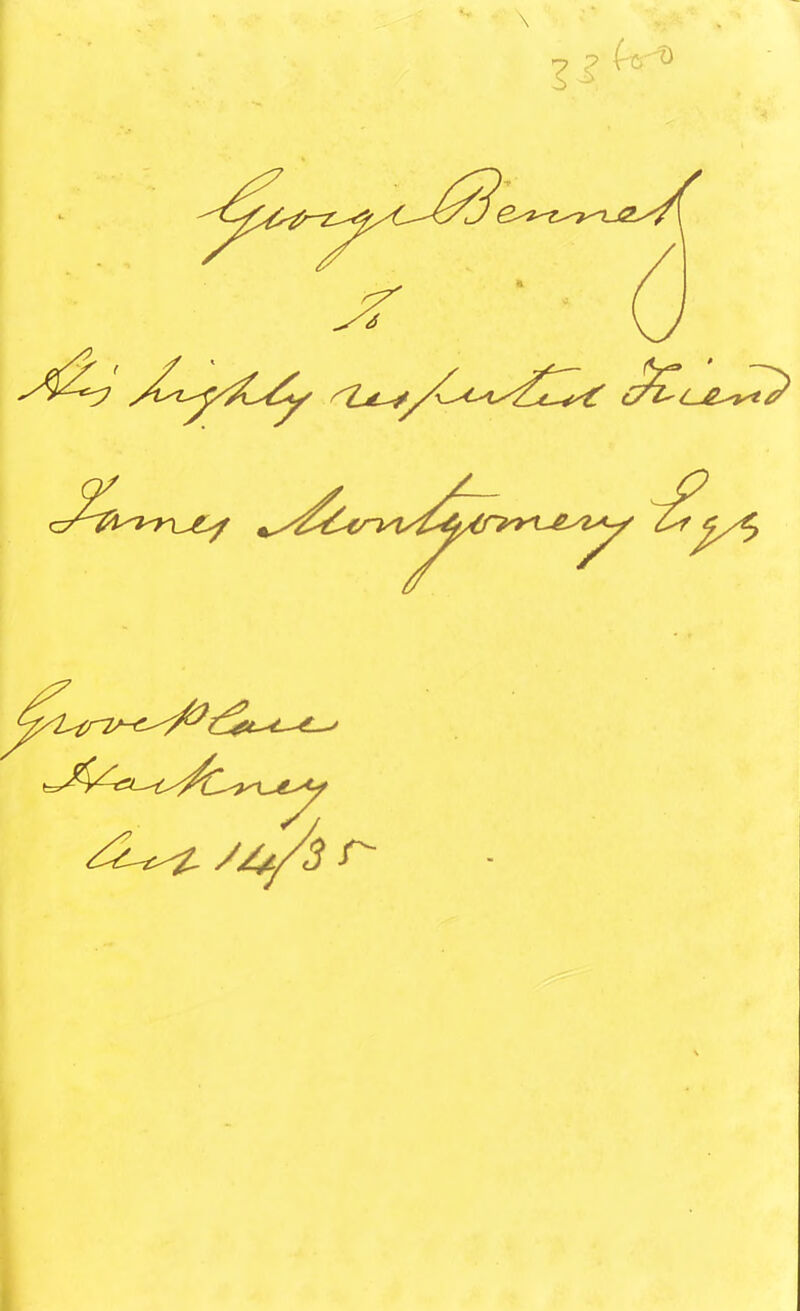 George Bennet
To
His highly respected Friend
James Montgomery Esqr
Grove Place
Hackney
Oct 14/35